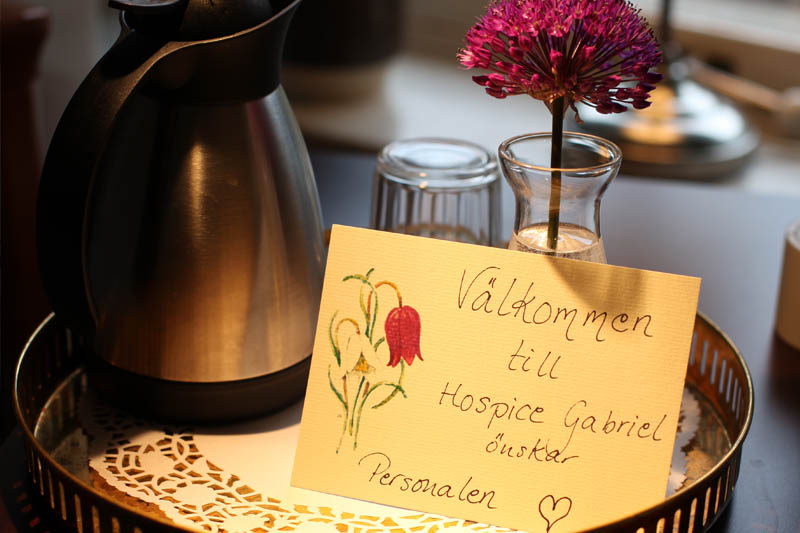 Välkommen
till
Hospice Gabriel
önskar
Personalen ♡